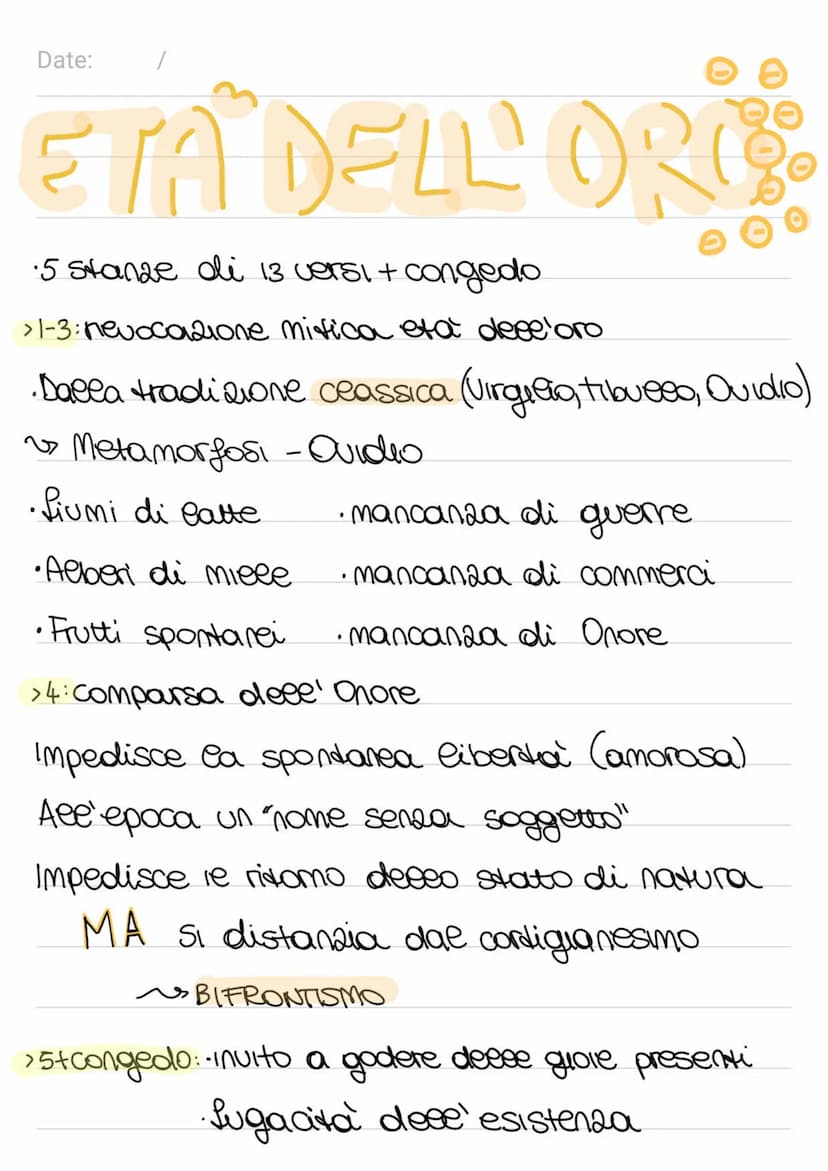 Date: /
ETÀ DELL'ORO
·5 stanze di 13 versi + congedo
>1-3: rievocazione mitica età dell'oro
·Dalla tradizione classica (Virgilio, Tibullo, Ovidio)
↝ Metamorfosi - Ovidio
·fiumi di latte ·mancanza di guerre
·Alberi di miele ·mancanza di commerci
·Frutti spontanei ·mancanza di Onore
>4: comparsa dell'Onore
Impedisce la spontanea libertà (amorosa)
All'epoca un "nome senza soggetto"
Impedisce il ritorno dello stato di natura
MA si distanzia dal cortigianesimo
↝ BIFRONTISMO
>5+congedo: ·invito a godere delle gioie presenti
·fugacità dell'esistenza